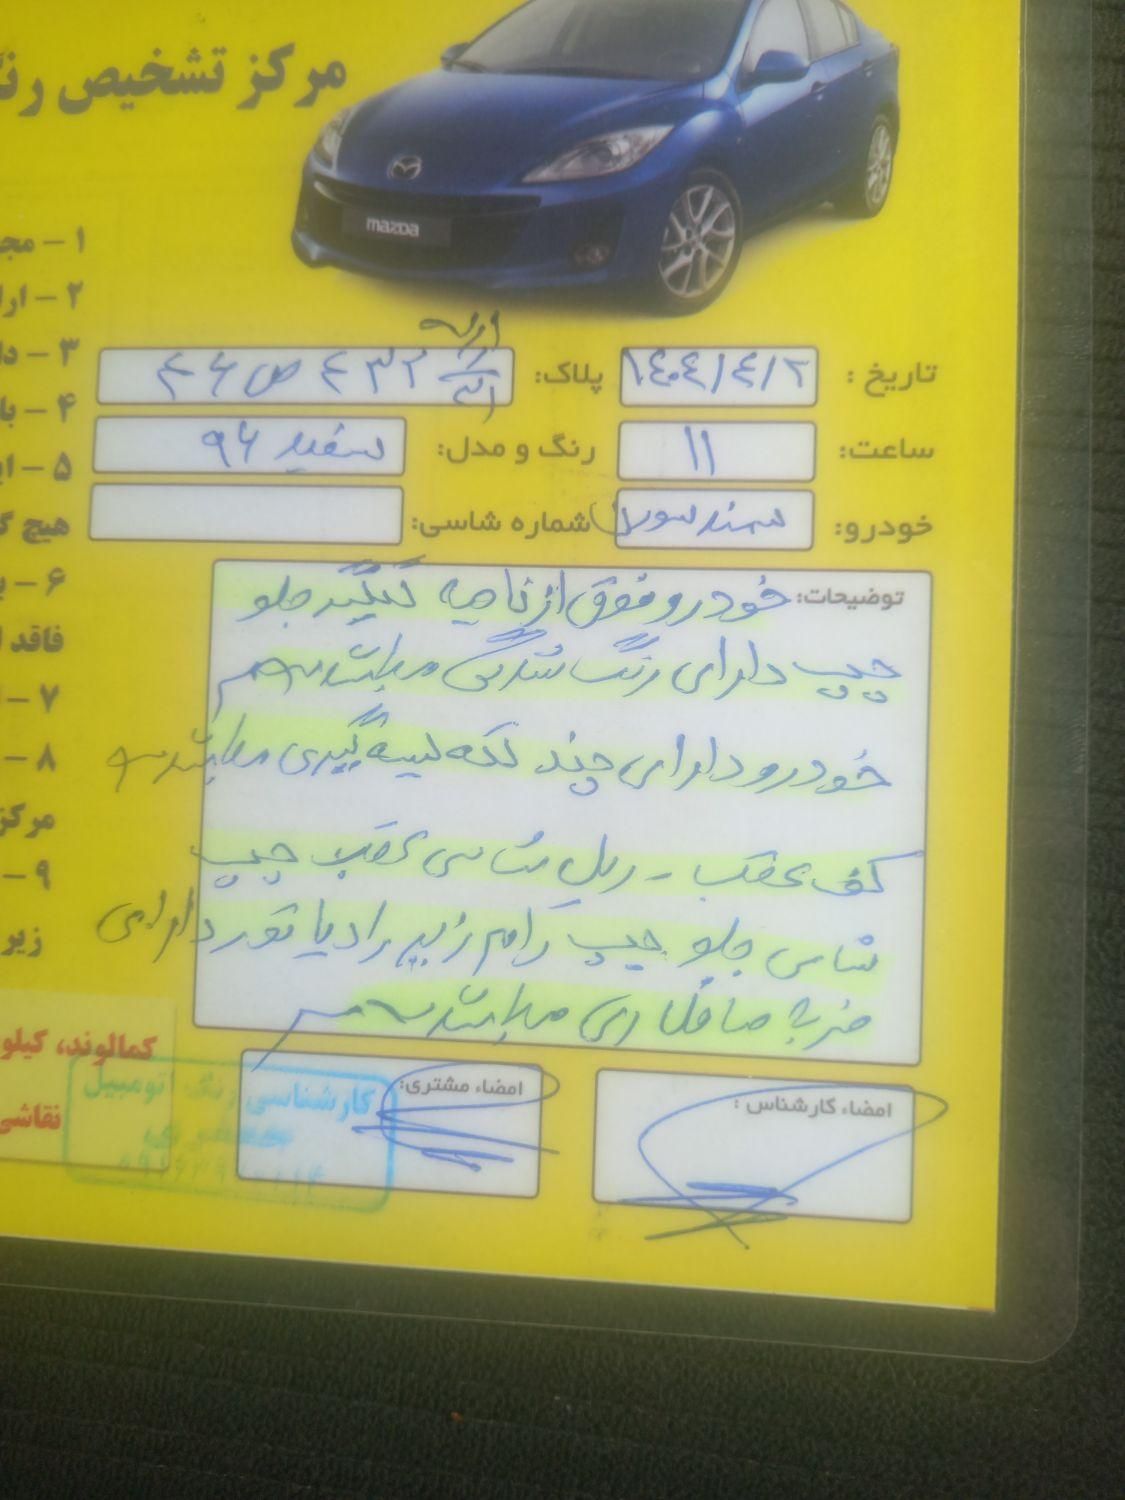 مرکز تشخیص رنگ
mazda
۱ - مج
۲ - ارا
۳ - دا
۴ - با
۵ - ای
هیچ گ
۶ - ی
فاقد ا
۷ -
۸ -
مرکز
۹ -
زیر
تاریخ : ۱۴۰۴/۴/۲ پلاک: ۴۳۲ ص ۴۶
ساعت: ۱۱ رنگ و مدل: سفید ۹۶
خودرو: سمند سورن شماره شاسی:
توضیحات: خودرو فوق از ناحیه گلگیر جلو
چپ دارای رنگ شدگی میباشد
خودرو دارای چند لکه لیسه گیری میباشد
کف عقب - ریل شاسی عقب چپ
شاسی جلو چپ رام زیر رادیاتور دارای
ضربه صافکاری میباشد
امضاء کارشناس : امضاء مشتری:
کمالوند، کیلو
نقاشی
کارشناسی رنگ اتومبیل